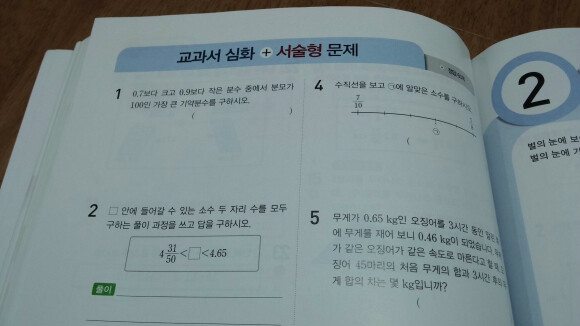 교과서 심화 + 서술형 문제
1 0.7보다 크고 0.9보다 작은 분수 중에서 분모가
100인 가장 큰 기약분수를 구하시오.
( )
2 □ 안에 들어갈 수 있는 소수 두 자리 수를 모두
구하는 풀이 과정을 쓰고 답을 구하시오.
4 31/50 < □ < 4.65
풀이
4 수직선을 보고 ㉠에 알맞은 소수를 구하시오.
7/10
㉠
(
5 무게가 0.65 kg인 오징어를 3시간 동안 말린
에 무게를 재어 보니 0.46 kg이 되었습니다.
가 같은 오징어가 같은 속도로 마른다고 할 때,
징어 45마리의 처음 무게의 합과 3시간 후의
게 합의 차는 몇 kg입니까?
(
2
별의 눈에 보
별의 눈에 기